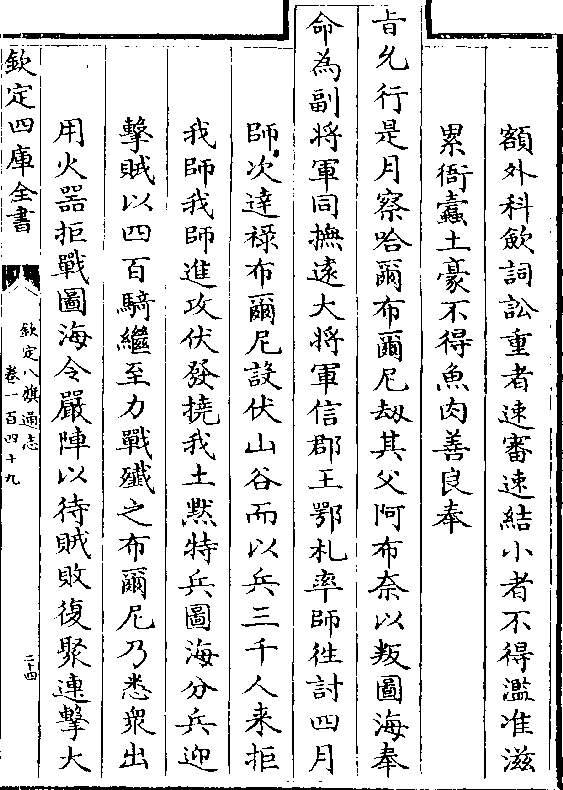 額外科歛詞訟重者速審速結小者不得濫准滋
累衙蠹土豪不得魚肉善良奉
㫖允行是月察哈爾布爾尼刼其父阿布奈以叛圖海奉
命為副將軍同撫逺大將軍信郡王鄂札率師徃討四月
師次達禄布爾尼設伏山谷而以兵三千人来拒
我師我師進攻伏發撓我土黙特兵圖海分兵迎
擊賊以四百騎繼至力戰殲之布爾尼乃悉衆出
用火器拒戰圖海令嚴陣以待賊敗復聚連擊大
欽定四庫全書
欽定八旗通志
卷一百四十九
二十四